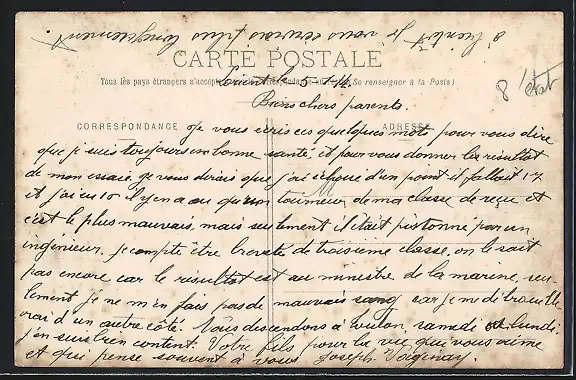 à bientôt je vous écrirai plus longuement.
CARTE POSTALE
Tous les pays étrangers n'accept (Se renseigner à la Poste)
Lorient le 5
8 état
Biens chers parents.
CORRESPONDANCE ADRESSE
Je vous écris ces quelques mots pour vous dire
que je suis toujours en bonne santé, et pour vous donner les résultat
de mon essaie je vous dirais que j'ai échoué d'un point il fallait 17
et j'ai eu 16 il y en a eu qu'un tourneur de ma classe de reçu et
c'est le plus mauvais, mais seulement il était pistonné par un
ingénieur. Je compte être breveté de troisième classe, on le sait
pas encore car le résultat est au ministre de la marine, seu-
lement je ne m'en fais pas de mauvais sang car je me débrouille
vrai d'un autre côté. Nous descendons à toulon, samedi ou lundi.
j'en suis bien content. Votre fils pour la vie qui vous aime
et qui pense souvent à vous Joseph